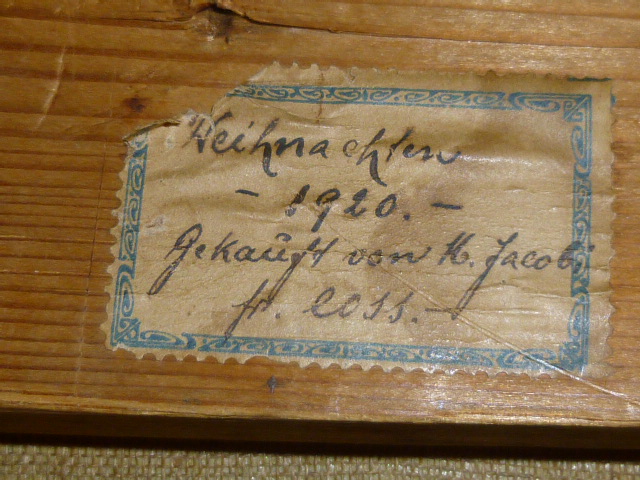 Weihnachten
- 1920. -
Gekauft von H. Jacobi
fr. Coss.-